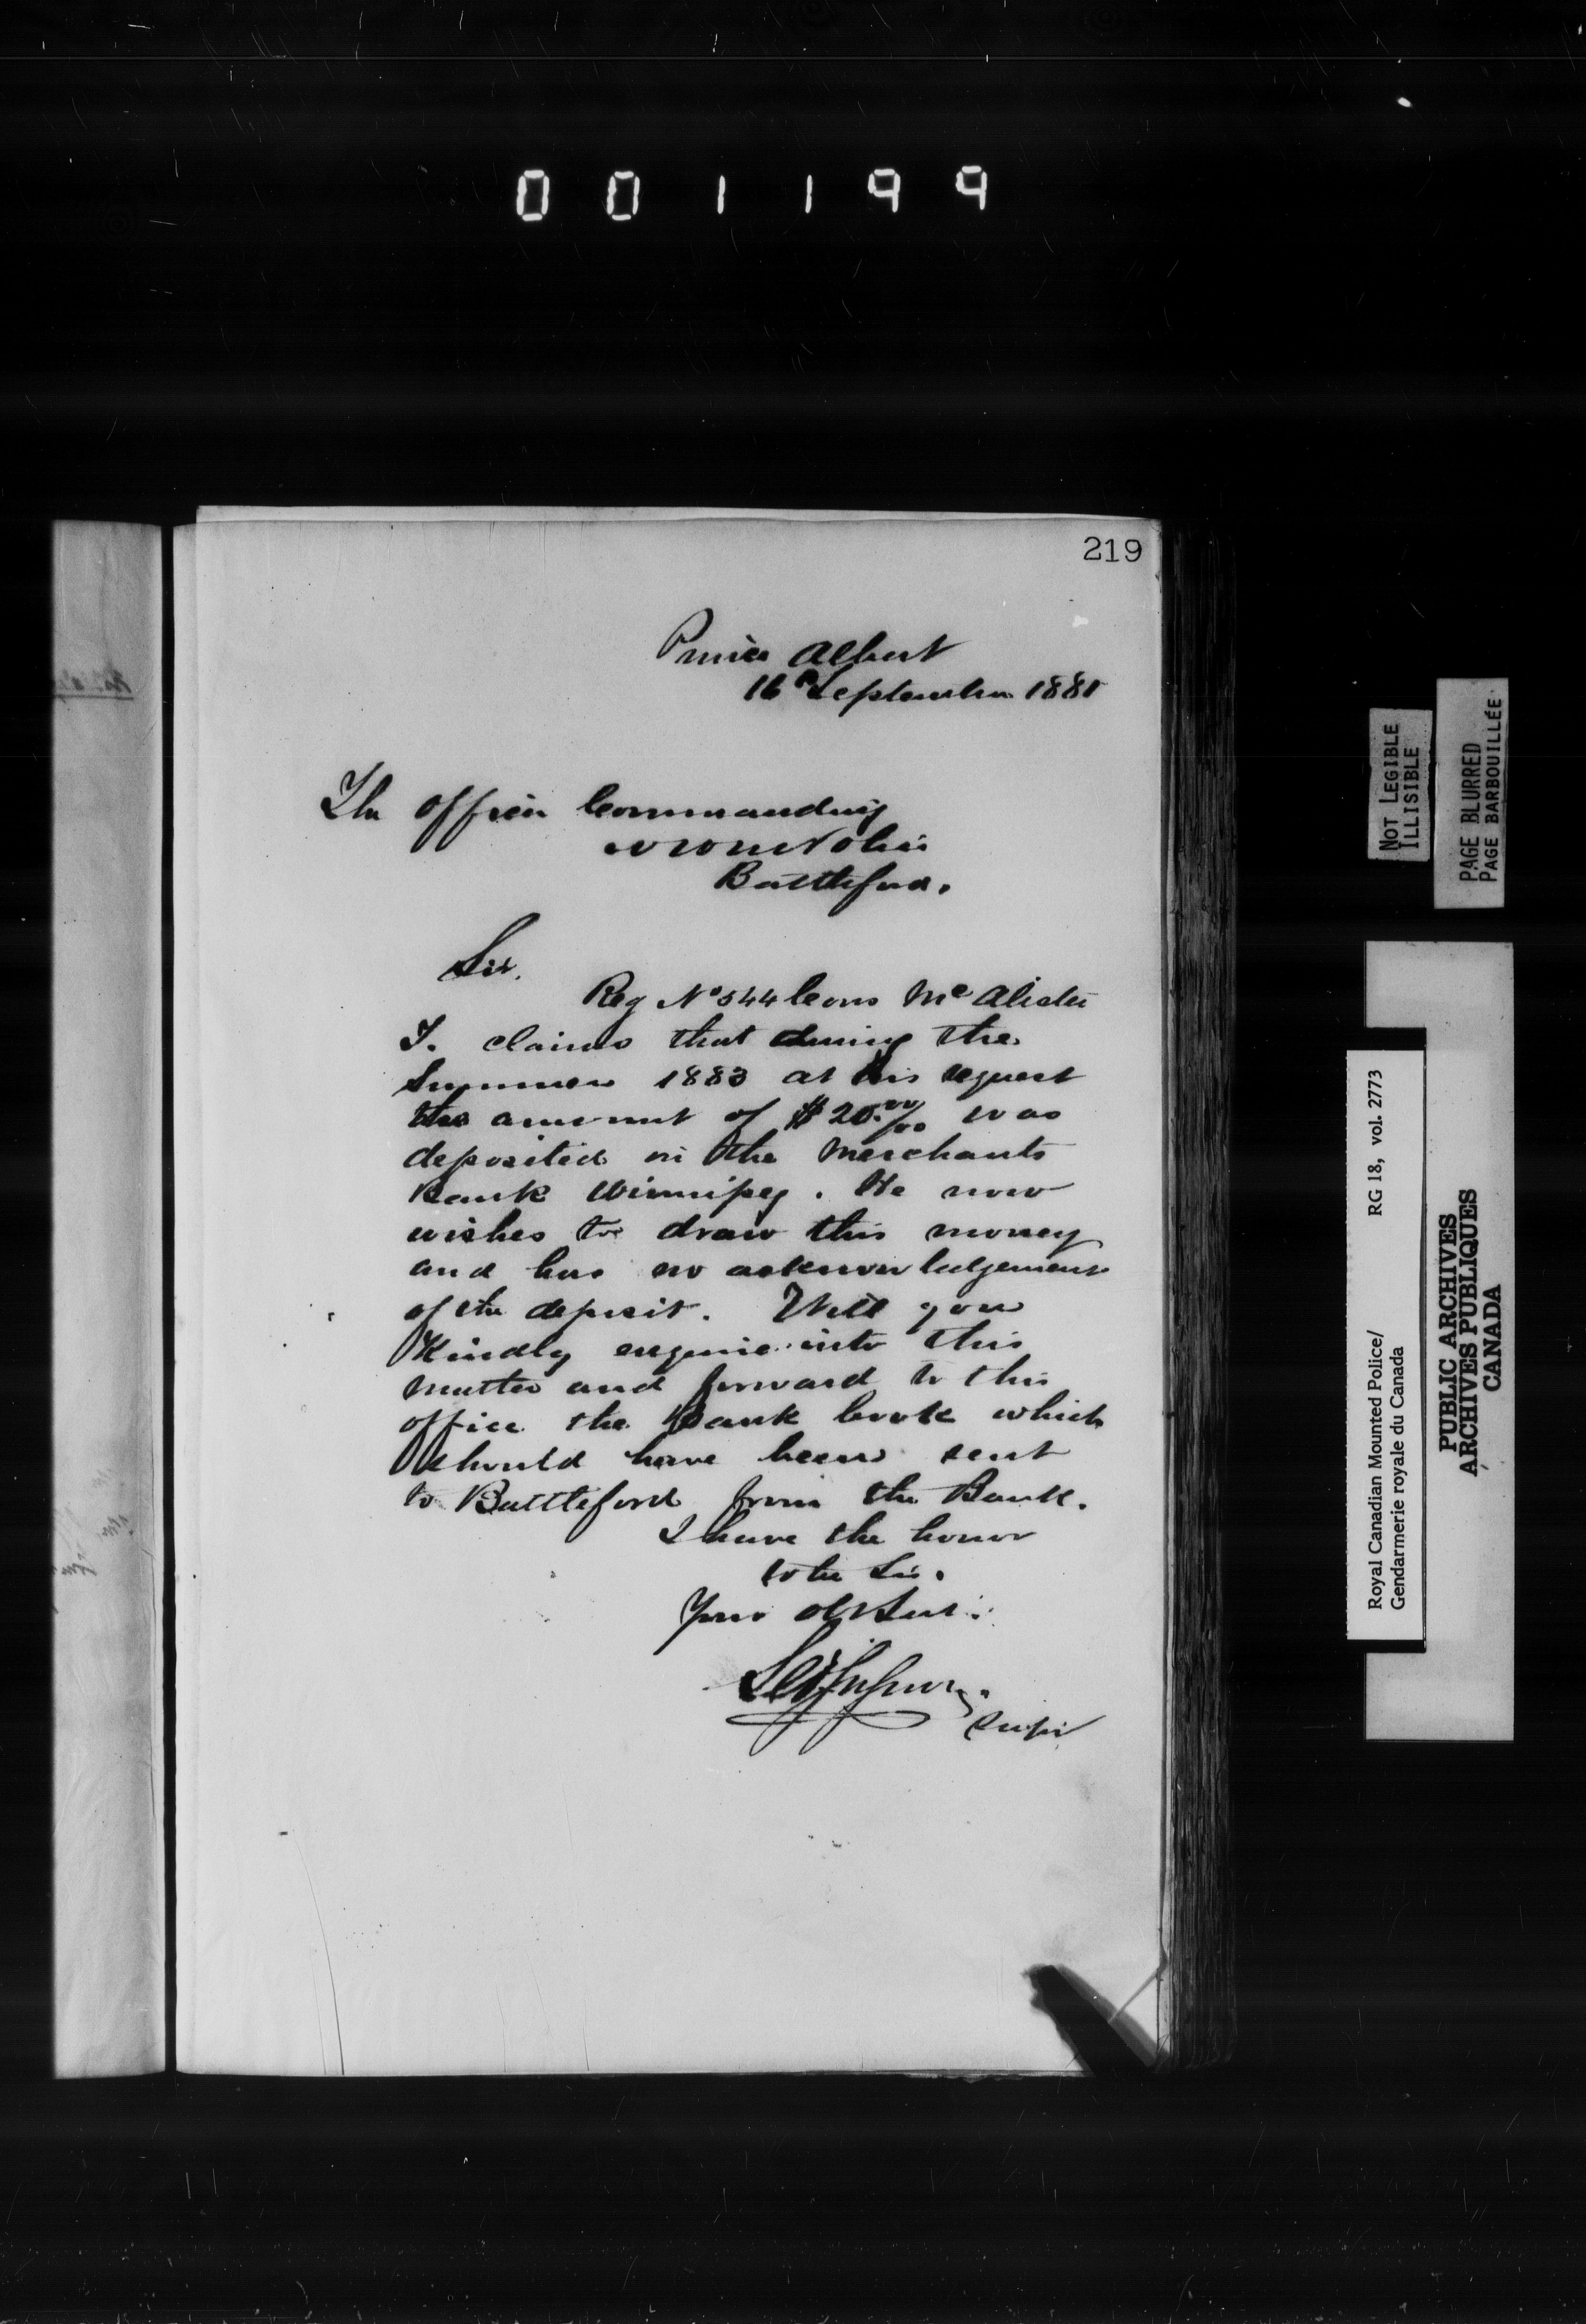 001199
219
Prince Albert
16th September 1885
The Officer Commanding
N W M Police
Battleford.
Sir,
Reg No 544 Cons McAlister
J. claims that during the
Summer 1883 at his request
the amount of $20.00/00 was
deposited in the Merchants
Bank Winnipeg. He now
wishes to draw this money
and has no acknowledgement
of the deposit. Will you
Kindly enquire into this
matter and forward to this
office the Bank book which
should have been sent
to Battleford from the Bank.
I have the honor
to be Sir.
Your Obt Servt
Supt
NOT LEGIBLE
ILLISIBLE
PAGE BLURRED
PAGE BARBOUILLÉE
Royal Canadian Mounted Police/ RG 18, vol. 2773
Gendarmerie royale du Canada
PUBLIC ARCHIVES
ARCHIVES PUBLIQUES
CANADA